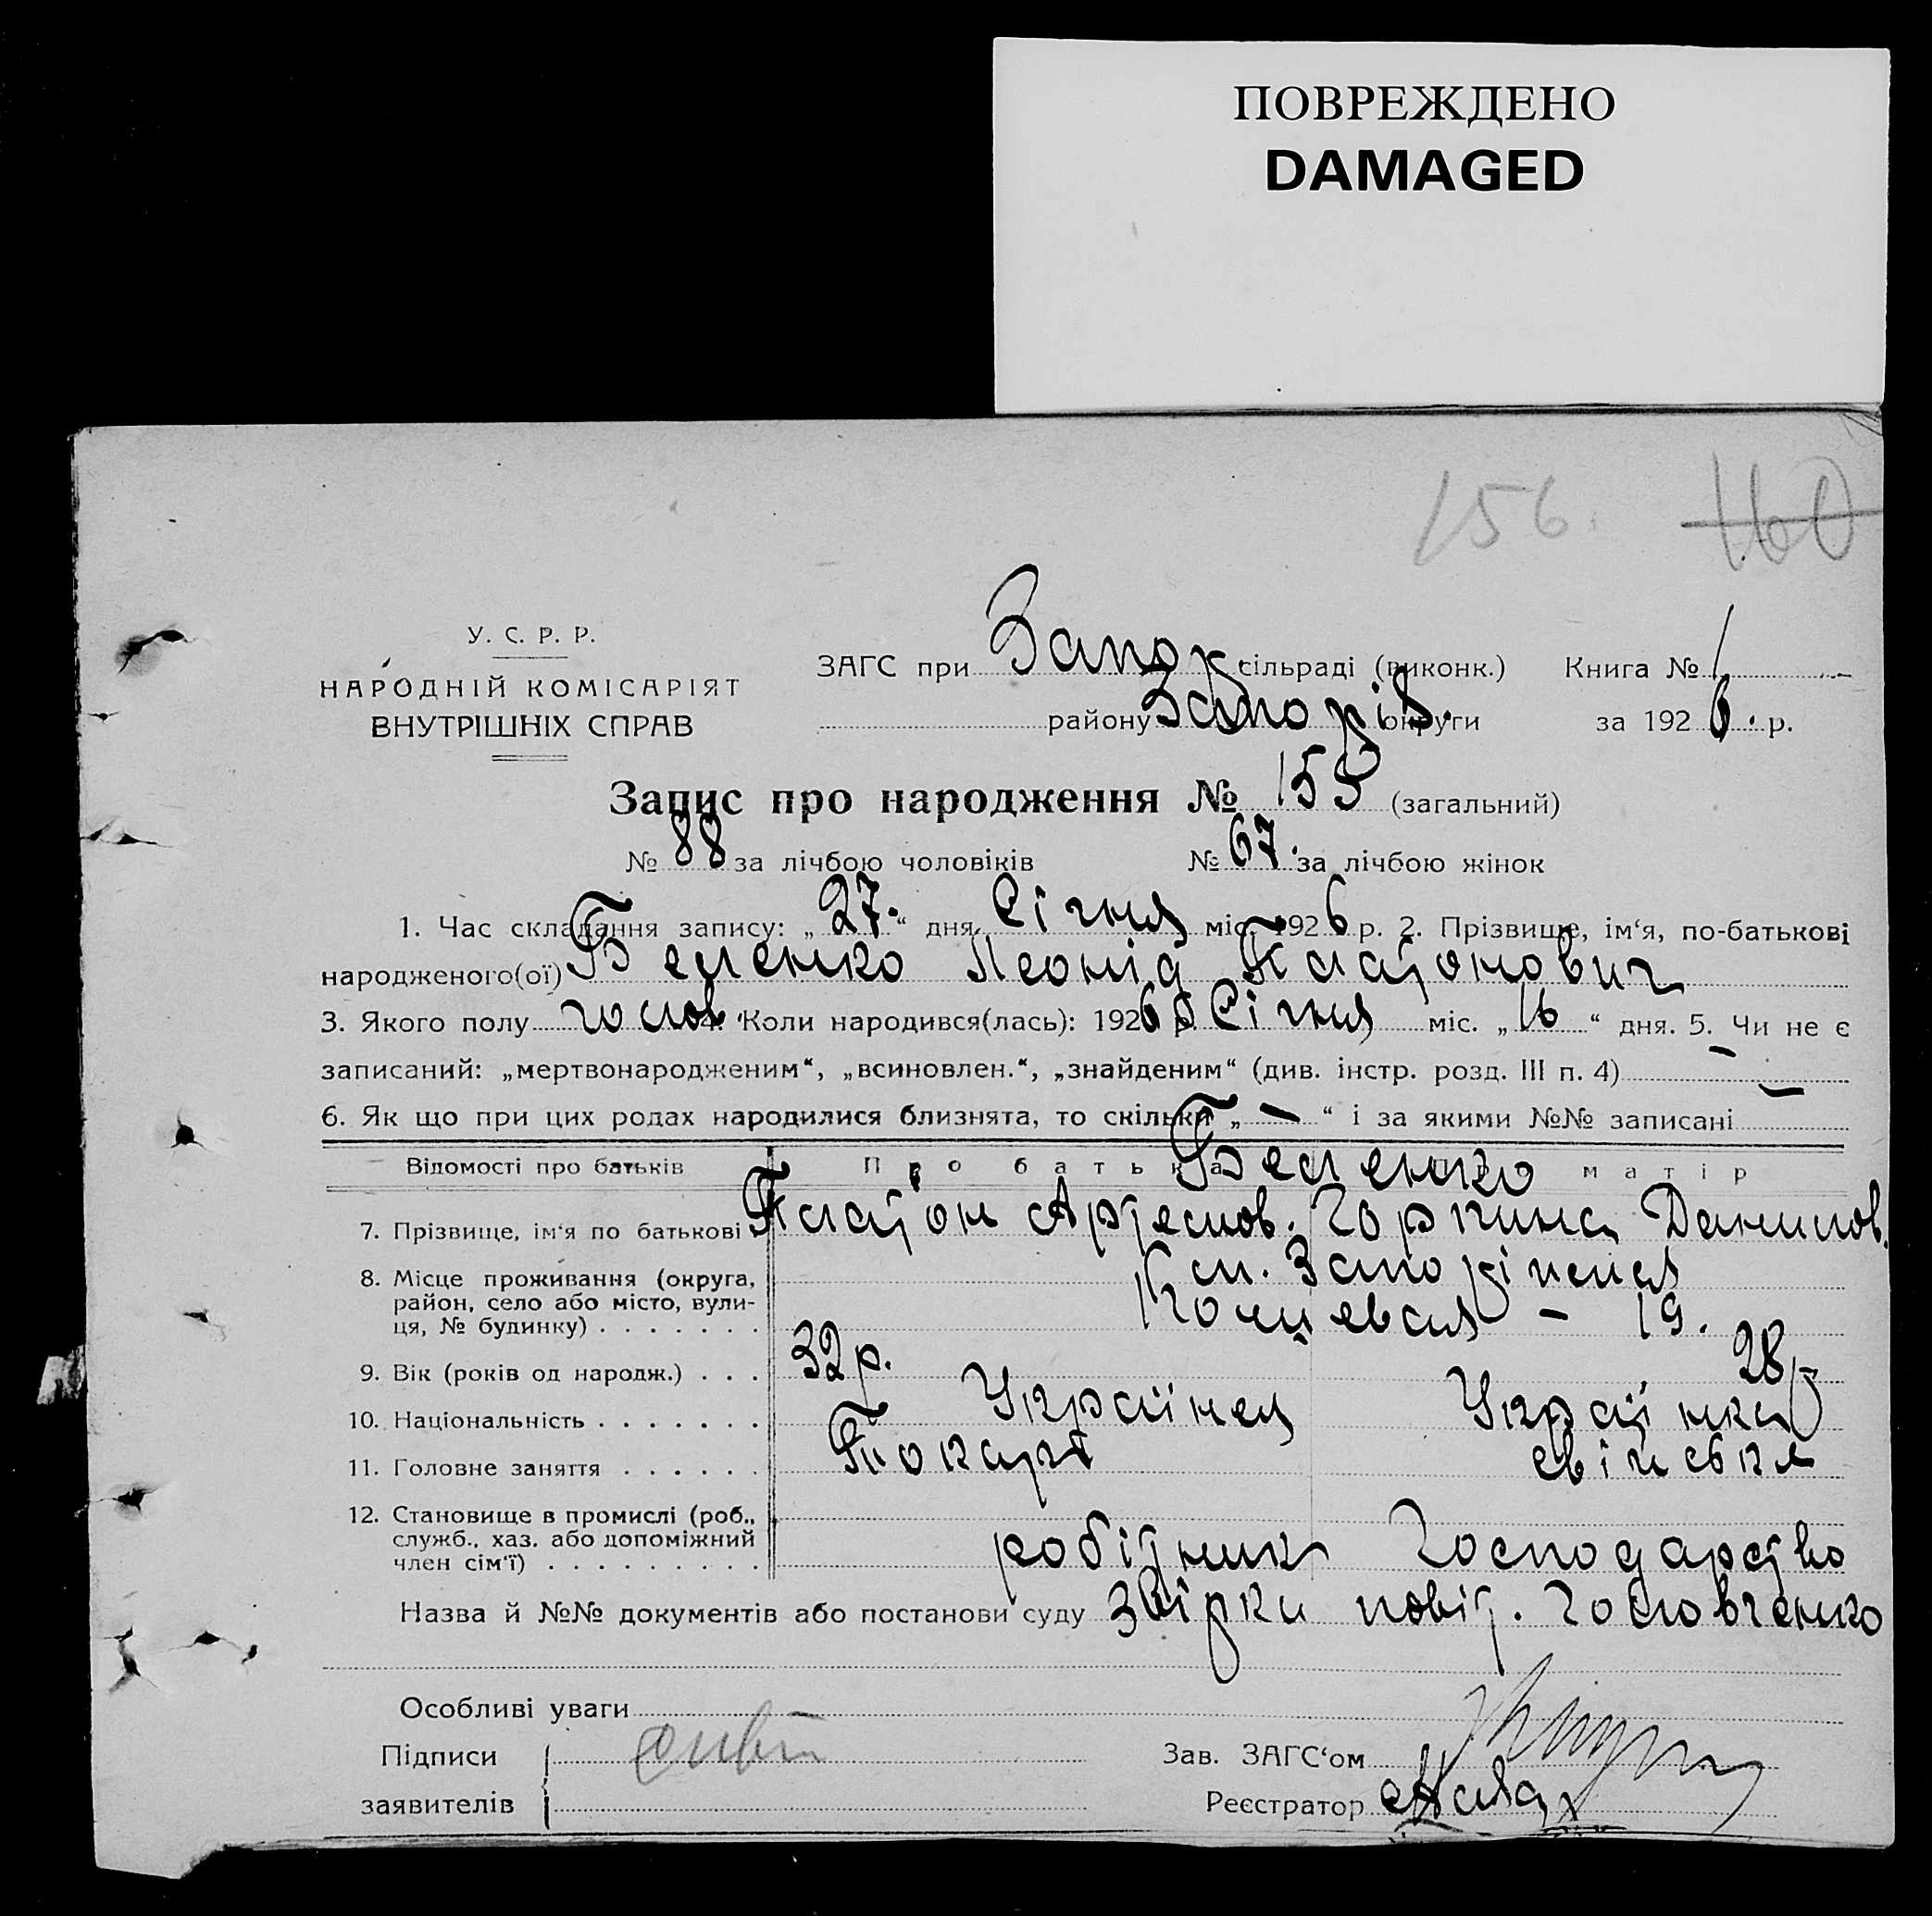 ПОВРЕЖДЕНО
DAMAGED
156. 160
У. С. Р. Р.
НАРОДНІЙ КОМІСАРІЯТ
ВНУТРІШНІХ СПРАВ
ЗАГС при Запор. сільраді (виконк.) Книга № 1
району Запоріз. округи за 1926. р.
Запис про народження № 155 (загальний)
№ 88 за лічбою чоловіків № 67. за лічбою жінок
1. Час складання запису: „27.“ дня Січня міс. 1926 р. 2. Прізвище, ім‘я, по-батькові
народженого(ої) Беленко Леонід Платонович
3. Якого полу голов. 4. Коли народився(лась): 1926 р. Січня міс. „16“ дня. 5. Чи не є
записаний: „мертвонародженим“, „всиновлен.“, „знайденим“ (див. інстр. розд. III п. 4) —
6. Як що при цих родах народилися близнята, то скільки „—“ і за якими №№ записані —
Відомості про батьків Про батька матір
Беленко
7. Прізвище, ім‘я по батькові Платон Артемов. Горпина Данилов.
8. Місце проживання (округа, район, село або місто, вулиця, № будинку) . . . . . . . м. Запоріжжя
– 19.
9. Вік (років од народж.) . . . 32 р. 28 р
10. Національність . . . . . . . Українец Українка
11. Головне заняття . . . . . . Токарь свійське
12. Становище в промислі (роб., служб., хаз. або допоміжний член сім‘ї) . . . . . . . . . робітник господарство
Назва й №№ документів або постанови суду Звірки повіт. Головченко
Особливі уваги
Підписи Зав. ЗАГС‘ом
заявителів Реєстратор